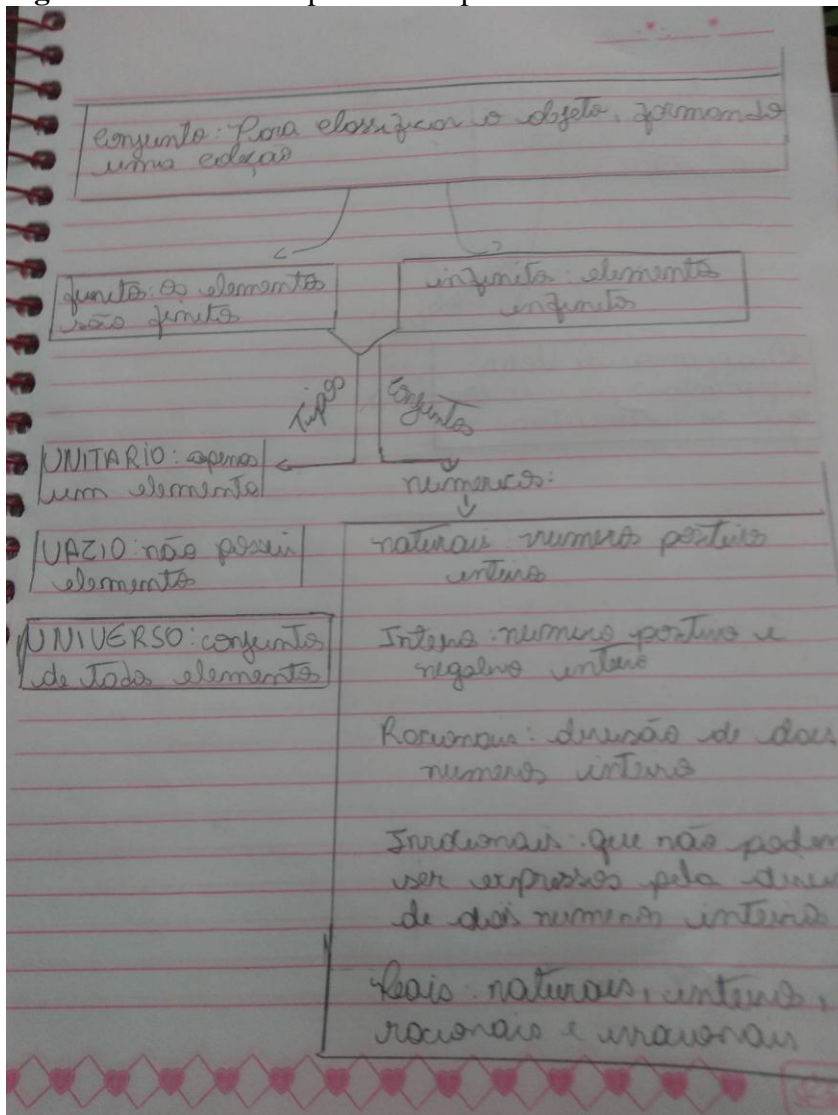 Conjunto: Para classificar o objeto, formando
uma coleção
finito: os elementos
são finitos
infinito: elementos
infinitos
Tipos
Conjuntos
UNITARIO: apenas
um elemento
VAZIO: não possui
elementos
UNIVERSO: conjunto
de todos elementos
numericos:
naturais numeros positivos
inteiros
Inteiros: numeros positivo e
negativo inteiro
Racionais: divisão de dois
numeros inteiro
Irracionais: que não podem
ser expressos pela
de dois numeros inteiros
Reais: naturais, inteiros,
racionais e irracionais